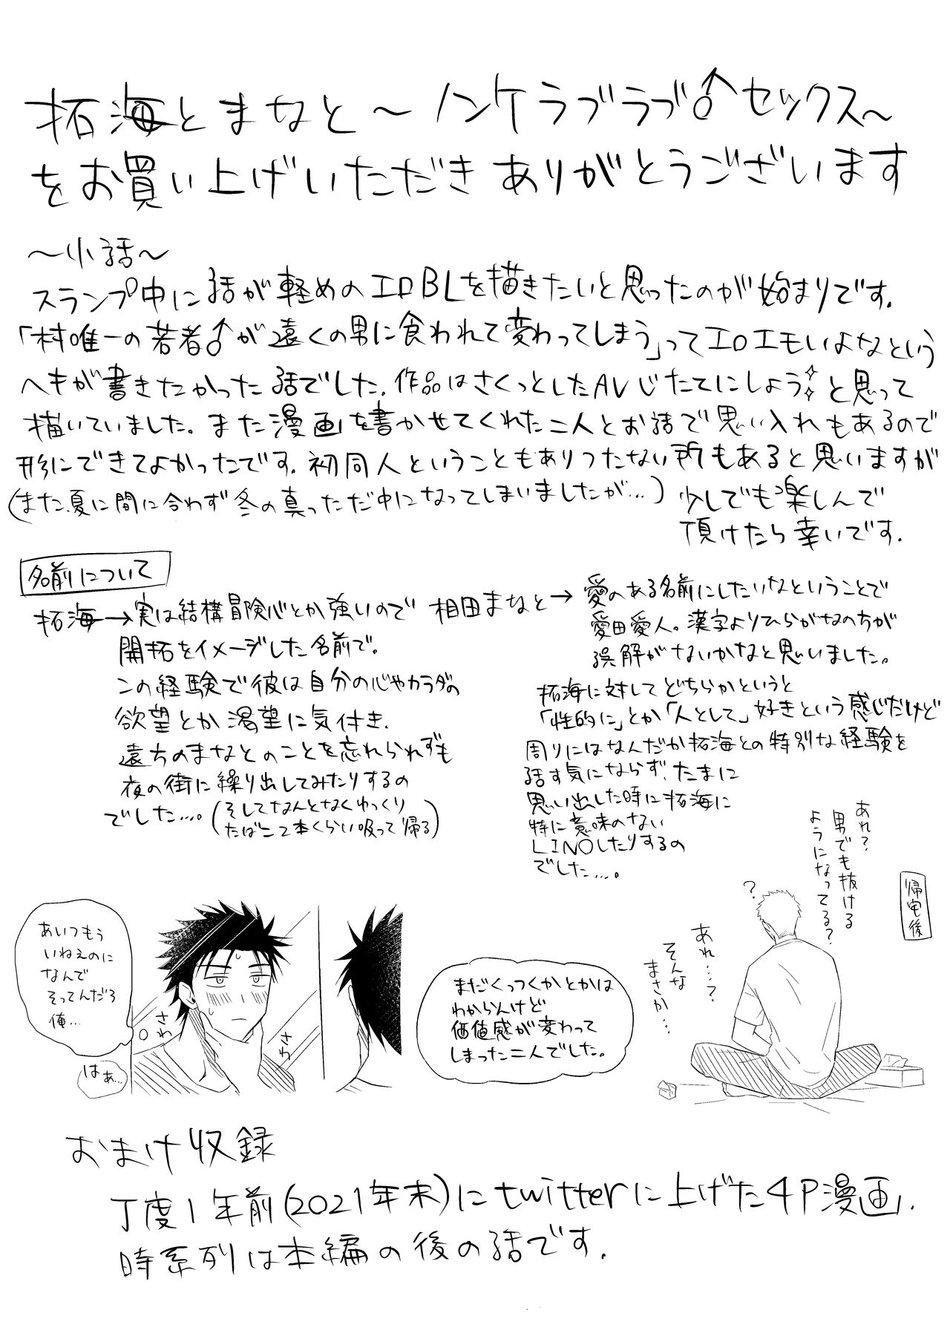 拓海とまなと～ノンケラブラブ♂セックス～
をお買い上げいただきありがとうございます
～小話～
スランプ中に話が軽めのエロBLを描きたいと思ったのが始まりです.
「村唯一の若者♂が遠くの男に食われて変わってしまう」ってエロエモいよなという
ヘキが書きたかった話でした.作品はさくっとしたAVじたてにしよう✧と思って
描いていました.また漫画を書かせてくれた二人とお話で思い入れもあるので
形にできてよかったです.初同人ということもありつたない所もあると思いますが
(また夏に間に合わず冬の真っただ中になってしまいましたが…)少しでも楽しんで
頂けたら幸いです.
名前について
拓海→実は結構冒険心とか強いので
開拓をイメージした名前で。
この経験で彼は自分の心やカラダの
欲望とか渇望に気付き.
遠方のまなとのことを忘れられずも
夜の街に繰り出してみたりするの
でした…。(そしてなんとなくゆっくり
たばこ2本くらい吸って帰る)
相田まなと→愛のある名前にしたいなということで
愛田愛人。漢字よりひらがなの方が
誤解がないかなと思いました。
拓海に対してどちらかというと
「性的に」とか「人として」好きという感じだけど
周りにはなんだか拓海との特別な経験を
話す気にならず.たまに
思い出した時に拓海に
特に意味のない
LINOしたりするの
でした….。
あいつもう
いねえのに
なんで
そってんだろ
俺…
はぁ…
さわ
さわ
まだくっつくかとかは
わからんけど
価値感が変わって
しまった二人でした。
帰宅後
あれ?
男でも抜ける
ようになってる?
?
あれ…?
そんな
まさか…
おまけ収録
丁度1年前(2021年末)にtwitterに上げた4P漫画.
時系列は本編の後の話です.